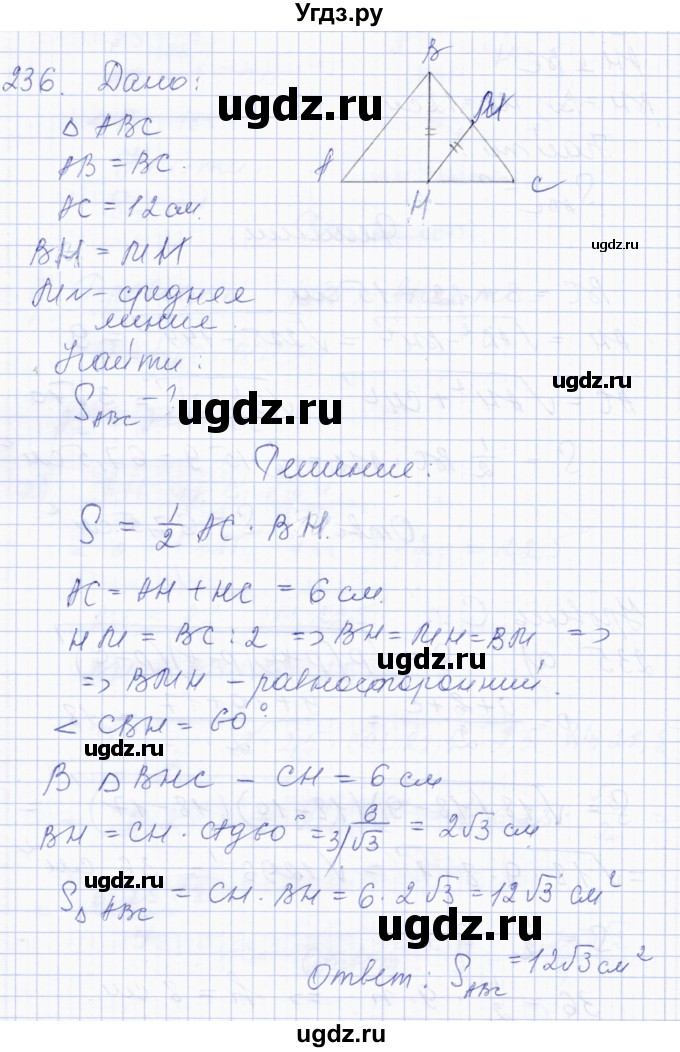 Угдз.ру
236. Дано:
△ ABC
AB = BC.
AC = 12 см.
BH = MH
MN - средняя
линия.
Найти:
S_ABC - ?
B
M
A
H
C
ugdz.ru
ugdz.ru
ugdz.ru
ugdz.ru
ugdz.ru
Решение:
S = 1/2 AC · BH.
AC = AH + HC = 6 см.
HM = BC : 2 => BH = MH = BM =>
ugdz.ru
=> BMH - равносторонний.
< CBH = 60°.
ugdz.ru
В △ BHC - CH = 6 см
BH = CH · ctg 60° = 6/√3 = 2√3 см
ugdz.ru
S_△ABC = CH · BH = 6 · 2√3 = 12√3 см²
ugdz.ru
Ответ: S_ABC = 12√3 см²
ugdz.ru
ugdz.ru